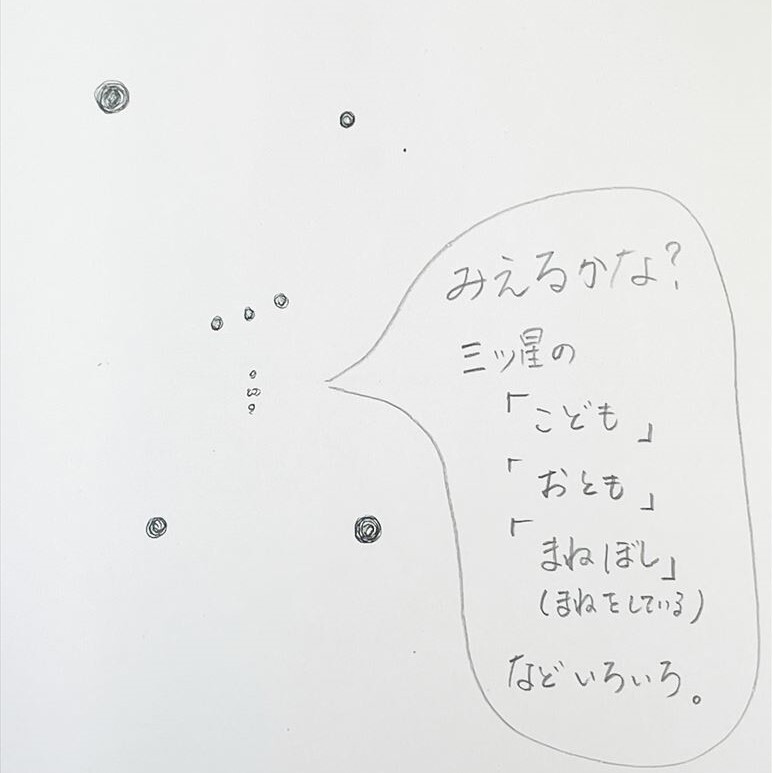 みえるかな?
三ツ星の
「こども」
「おとも」
「まねぼし」
(まねをしている)
などいろいろ。